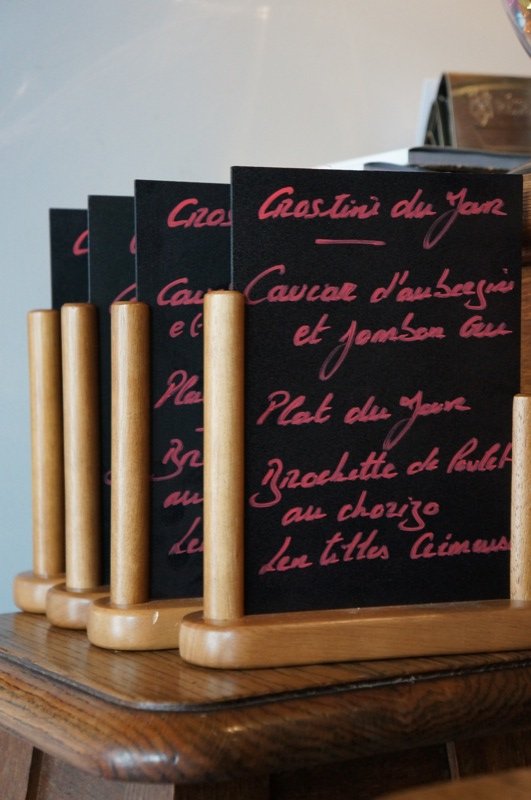 Crostini du Jour
Caviar d'aubergine
et Jambon Cru
Plat du Jour
Brochette de Poulet
au chorizo
Lentilles Crémeuses
Cros
Cav
et
Plat
Br
au
Len
C